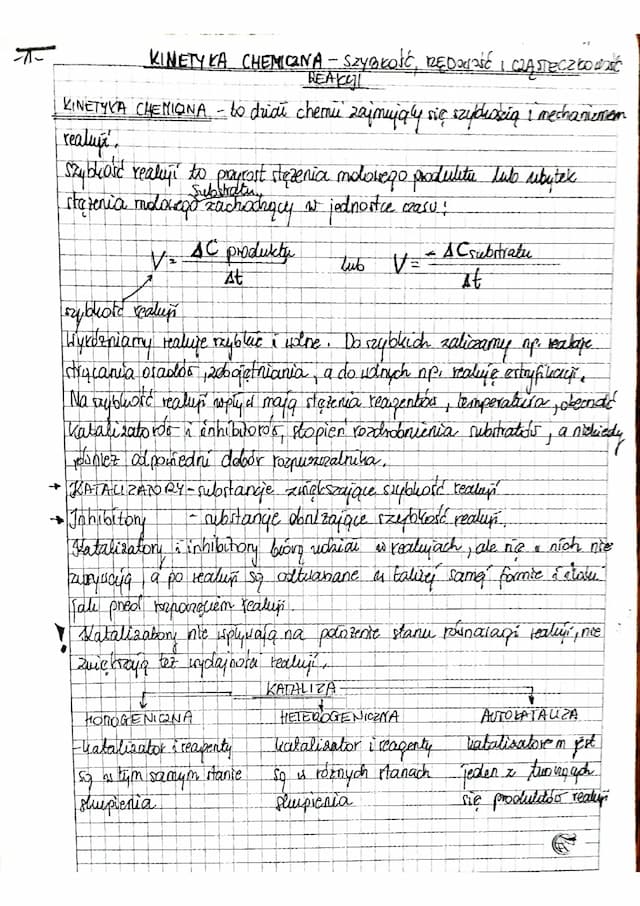 -II-
KINETYKA CHEMICZNA - SZYBKOŚĆ, RZĘDOWOŚĆ I CZĄSTECZKOWOŚĆ
REAKCJI
KINETYKA CHEMICZNA - to dział chemii zajmujący się szybkością i mechanizmem
reakcji.
Szybkość reakcji to przyrost stężenia molowego produktu lub ubytek
substratu
stężenia molowego zachodzący w jednostce czasu:
V = ΔC produktu / Δt lub V = - ΔC substratu / Δt
szybkość reakcji
Wyróżniamy reakcje szybkie i wolne. Do szybkich zaliczamy np. reakcje
strącania osadów, zobojętniania, a do wolnych np. reakcję estryfikacji.
Na szybkość reakcji wpływ mają stężenia reagentów, temperatura, obecność
katalizatorów i inhibitorów, stopień rozdrobnienia substratów, a niekiedy
również odpowiedni dobór rozpuszczalnika.
→ KATALIZATORY - substancje zwiększające szybkość reakcji
→ Inhibitory - substancje obniżające szybkość reakcji.
Katalizatory i inhibitory biorą udział w reakcjach, ale się w nich nie
zużywają, a po reakcji są odtwarzane w takiej samej formie i ilości
jak przed rozpoczęciem reakcji.
! Katalizatory nie wpływają na położenie stanu równowagi reakcji, nie
zwiększają też wydajności reakcji.
KATALIZA
HOMOGENICZNA HETEROGENICZNA AUTOKATALIZA
- katalizator i reagenty katalizator i reagenty katalizatorem jest
są w tym samym stanie są w różnych stanach jeden z tworzących
skupienia skupienia się produktów reakcji